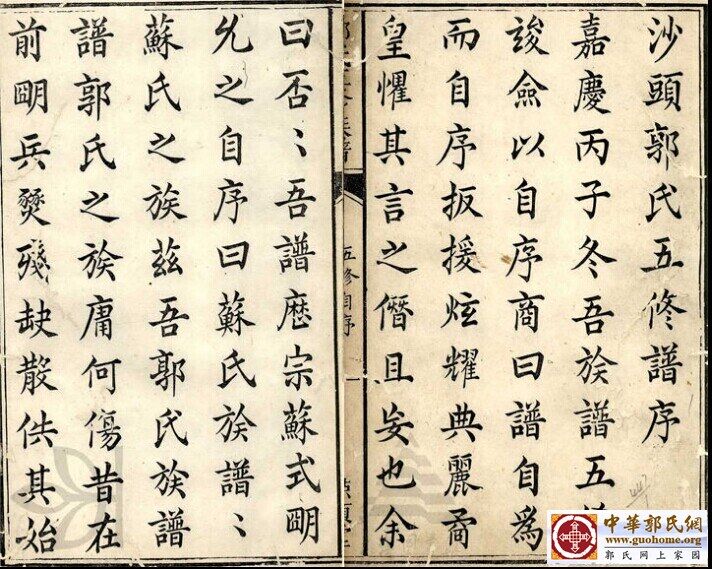 沙頭郭氏五修譜序
嘉慶丙子冬吾族譜五
竣僉以自序商曰譜自為
而自序扳援炫耀典麗矞
皇懼其言之僭且妄也余
五修自序
一
曰否〻吾譜歷宗蘇式明
允之自序曰蘇氏族譜〻
蘇氏之族茲吾郭氏族譜
譜郭氏之族庸何傷昔在
前明兵燹殘缺散佚其始
中華郭氏網
www.guohome.org
郭氏网上家园